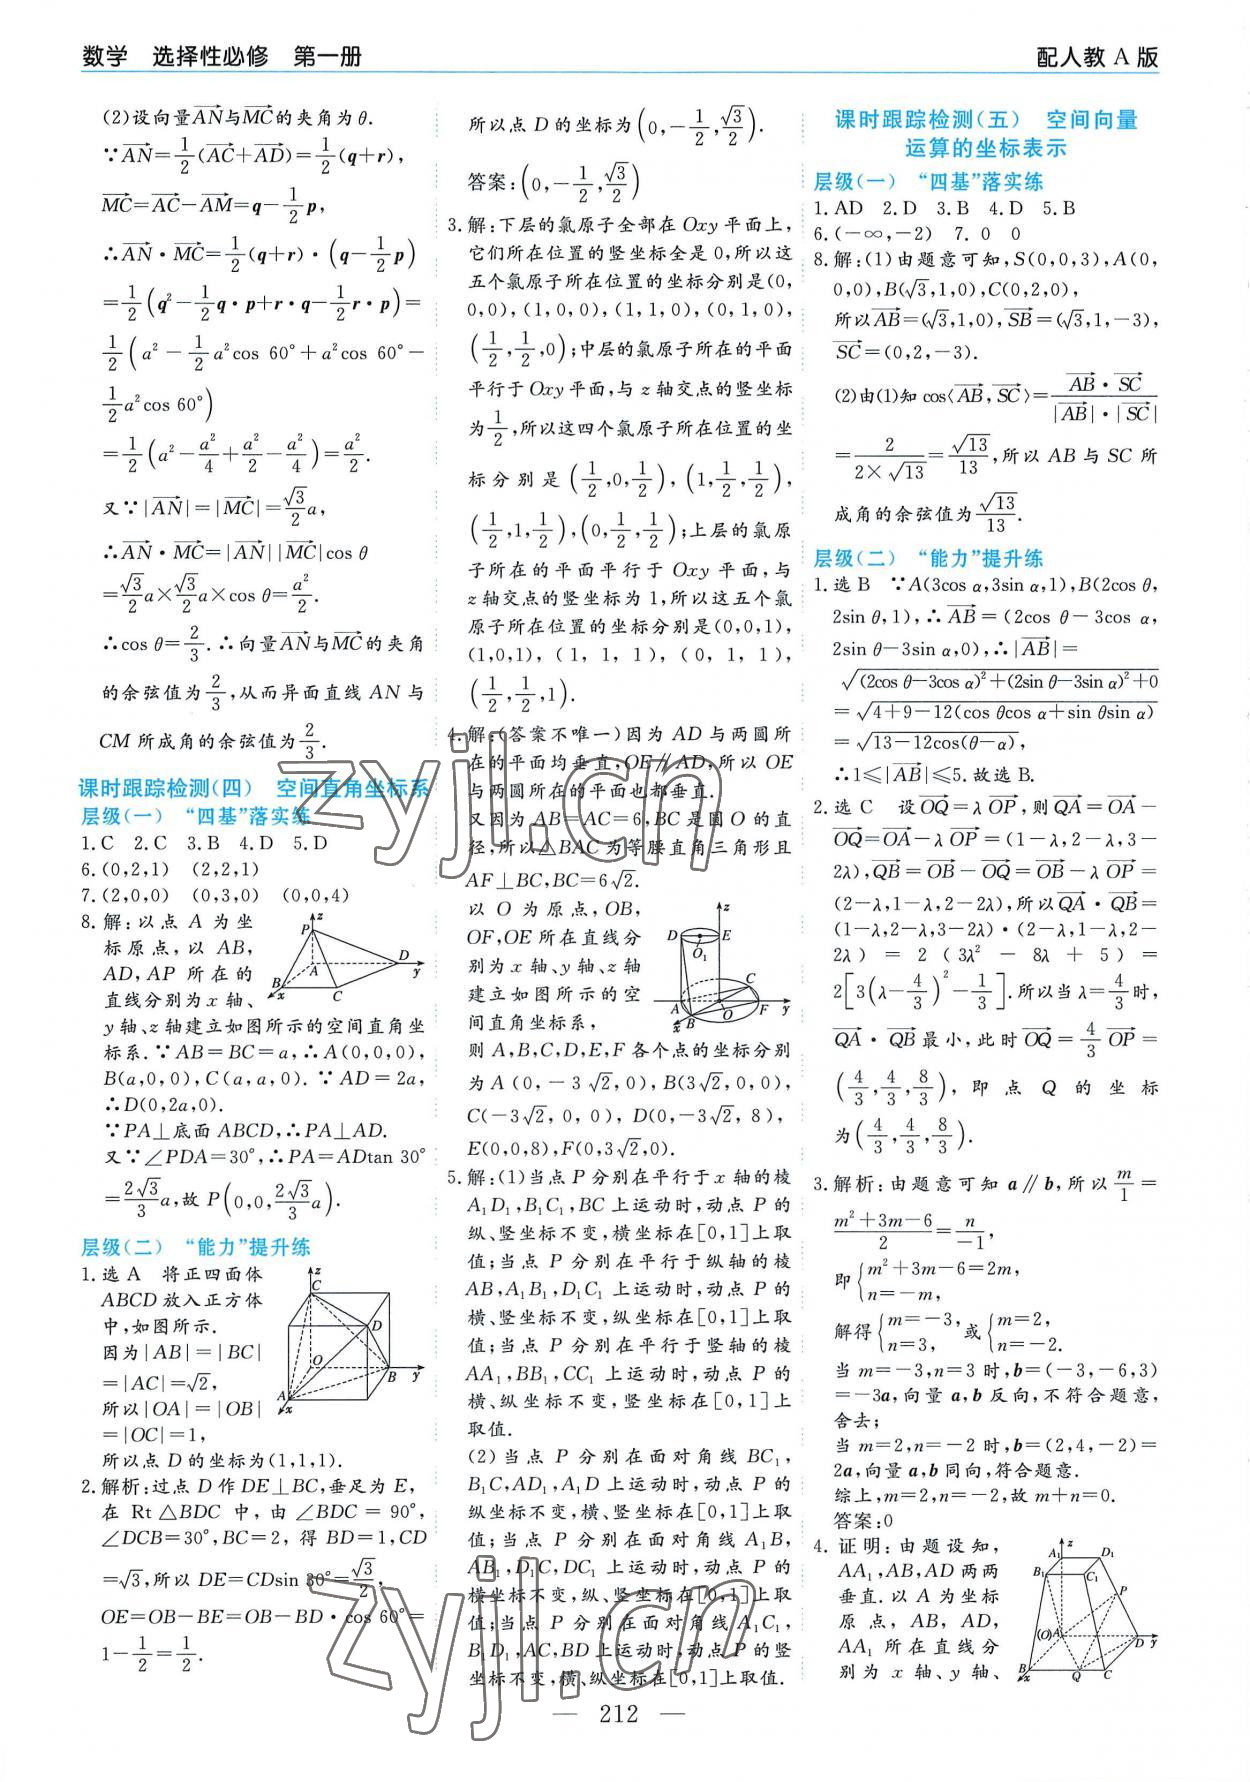 数学 选择性必修 第一册
配人教 A 版
(2)设向量AN与MC的夹角为θ.
∵AN=1/2(AC+AD)=1/2(q+r),
MC=AC-AM=q-1/2p,
∴AN·MC=1/2(q+r)·(q-1/2p)
=1/2(q²-1/2q·p+r·q-1/2r·p)=
1/2(a²-1/2a²cos 60°+a²cos 60°-
1/2a²cos 60°)
=1/2(a²-a²/4+a²/2-a²/4)=a²/2.
又∵|AN|=|MC|=√3/2a,
∴AN·MC=|AN||MC|cos θ
=√3/2a×√3/2a×cos θ=a²/2.
∴cos θ=2/3.∴向量AN与MC的夹角
的余弦值为2/3,从而异面直线 AN 与
CM 所成角的余弦值为2/3.
课时跟踪检测(四) 空间直角坐标系
层级(一) “四基”落实练
1.C 2.C 3.B 4.D 5.D
6.(0,2,1) (2,2,1)
7.(2,0,0) (0,3,0) (0,0,4)
8.解:以点 A 为坐
标原点,以 AB,
AD,AP 所在的
直线分别为 x 轴、
y轴、z轴建立如图所示的空间直角坐
标系.∵AB=BC=a,∴A(0,0,0),
B(a,0,0),C(a,a,0).∵AD=2a,
∴D(0,2a,0).
∵PA⊥底面 ABCD,∴PA⊥AD.
又∵∠PDA=30°,∴PA=ADtan 30°
=2√3/3a,故 P(0,0,2√3/3a).
z
P
A
D
y
B
x
C
层级(二) “能力”提升练
1.选 A 将正四面体
ABCD 放入正方体
中,如图所示.
因为|AB|=|BC|
=|AC|=√2,
所以|OA|=|OB|
=|OC|=1,
所以点 D 的坐标为(1,1,1).
z
C
D
O
B
y
A
x
2.解析:过点 D 作 DE⊥BC,垂足为 E,
在 Rt△BDC 中,由 ∠BDC = 90°,
∠DCB=30°,BC=2,得 BD=1,CD
=√3,所以 DE=CDsin 30°=√3/2,
OE=OB-BE=OB-BD·cos 60°=
1-1/2=1/2.
所以点 D 的坐标为(0,-1/2,√3/2).
答案:(0,-1/2,√3/2)
3.解:下层的氯原子全部在 Oxy 平面上,
它们所在位置的竖坐标全是 0,所以这
五个氯原子所在位置的坐标分别是(0,
0,0),(1,0,0),(1,1,0),(0,1,0),
(1/2,1/2,0);中层的氯原子所在的平面
平行于 Oxy 平面,与 z 轴交点的竖坐标
为1/2,所以这四个氯原子所在位置的坐
标分别是(1/2,0,1/2),(1,1/2,1/2),
(1/2,1,1/2),(0,1/2,1/2);上层的氯原
子所在的平面平行于 Oxy 平面,与
z轴交点的竖坐标为 1,所以这五个氯
原子所在位置的坐标分别是(0,0,1),
(1,0,1),(1,1,1),(0,1,1),
(1/2,1/2,1).
4.解:(答案不唯一)因为 AD 与两圆所
在的平面均垂直,OE∥AD,所以 OE
与两圆所在的平面也都垂直.
又因为 AB=AC=6,BC 是圆 O 的直
径,所以△BAC 为等腰直角三角形且
AF⊥BC,BC=6√2.
以 O 为原点,OB,
OF,OE所在直线分
别为 x 轴、y轴、z轴
建立如图所示的空
间直角坐标系,
z
D
E
O₁
C
A
O
F
y
B
x
则 A,B,C,D,E,F 各个点的坐标分别
为 A(0,-3√2,0),B(3√2,0,0),
C(-3√2,0,0),D(0,-3√2,8),
E(0,0,8),F(0,3√2,0).
5.解:(1)当点 P 分别在平行于 x 轴的棱
A₁D₁,B₁C₁,BC 上运动时,动点 P 的
纵、竖坐标不变,横坐标在[0,1]上取
值;当点 P 分别在平行于纵轴的棱
AB,A₁B₁,D₁C₁ 上运动时,动点 P 的
横、竖坐标不变,纵坐标在[0,1]上取
值;当点 P 分别在平行于竖轴的棱
AA₁,BB₁,CC₁ 上运动时,动点 P 的
横、纵坐标不变,竖坐标在[0,1]上
取值.
(2)当点 P 分别在面对角线 BC₁,
B₁C,AD₁,A₁D 上运动时,动点 P 的
纵坐标不变,横、竖坐标在[0,1]上取
值;当点 P 分别在面对角线 A₁B,
AB₁,D₁C,DC₁ 上运动时,动点 P 的
横坐标不变,纵、竖坐标在[0,1]上取
值;当点 P 分别在面对角线A₁C₁,
B₁D₁,AC,BD上运动时,动点 P 的竖
坐标不变,横、纵坐标在[0,1]上取值.
课时跟踪检测(五) 空间向量
运算的坐标表示
层级(一) “四基”落实练
1.AD 2.D 3.B 4.D 5.B
6.(-∞,-2) 7.0 0
8.解:(1)由题意可知,S(0,0,3),A(0,
0,0),B(√3,1,0),C(0,2,0),
所以AB=(√3,1,0),SB=(√3,1,-3),
SC=(0,2,-3).
(2)由(1)知 cos⟨AB,SC⟩=AB·SC/|AB|·|SC|
=2/2×√13=√13/13,所以 AB 与 SC 所
成角的余弦值为√13/13.
层级(二) “能力”提升练
1.选 B ∵A(3cos α,3sin α,1),B(2cos θ,
2sin θ,1),∴AB=(2cos θ-3cos α,
2sin θ-3sin α,0),∴|AB|=
√(2cos θ-3cos α)²+(2sin θ-3sin α)²+0
=√4+9-12(cos θcos α+sin θsin α)
=√13-12cos(θ-α),
∴1≤|AB|≤5.故选 B.
2.选 C 设OQ=λOP,则QA=OA-
OQ=OA-λOP=(1-λ,2-λ,3-
2λ),QB=OB-OQ=OB-λOP=
(2-λ,1-λ,2-2λ),所以QA·QB=
(1-λ,2-λ,3-2λ)·(2-λ,1-λ,2-
2λ)=2(3λ²-8λ+5)=
2[3(λ-4/3)²-1/3].所以当λ=4/3时,
QA·QB最小,此时OQ=4/3OP=
(4/3,4/3,8/3),即点 Q 的坐标
为(4/3,4/3,8/3).
3.解析:由题意可知 a∥b,所以m/1=
m²+3m-6/2=n/-1,
即{m²+3m-6=2m,
n=-m,
解得{m=-3, 或{m=2,
n=3, n=-2.
当 m=-3,n=3 时,b=(-3,-6,3)
=-3a,向量 a,b 反向,不符合题意,
舍去;
当 m=2,n=-2 时,b=(2,4,-2)=
2a,向量 a,b 同向,符合题意.
综上,m=2,n=-2,故 m+n=0.
答案:0
4.证明:由题设知,
AA₁,AB,AD 两两
垂直.以 A 为坐标
原点,AB,AD,
AA₁ 所在直线分
别为 x 轴、y轴、
z
A₁
D₁
B₁
C₁
P
(O)A
D
y
B
x
Q
C
zyjl.cn
zyjl.cn
— 212 —